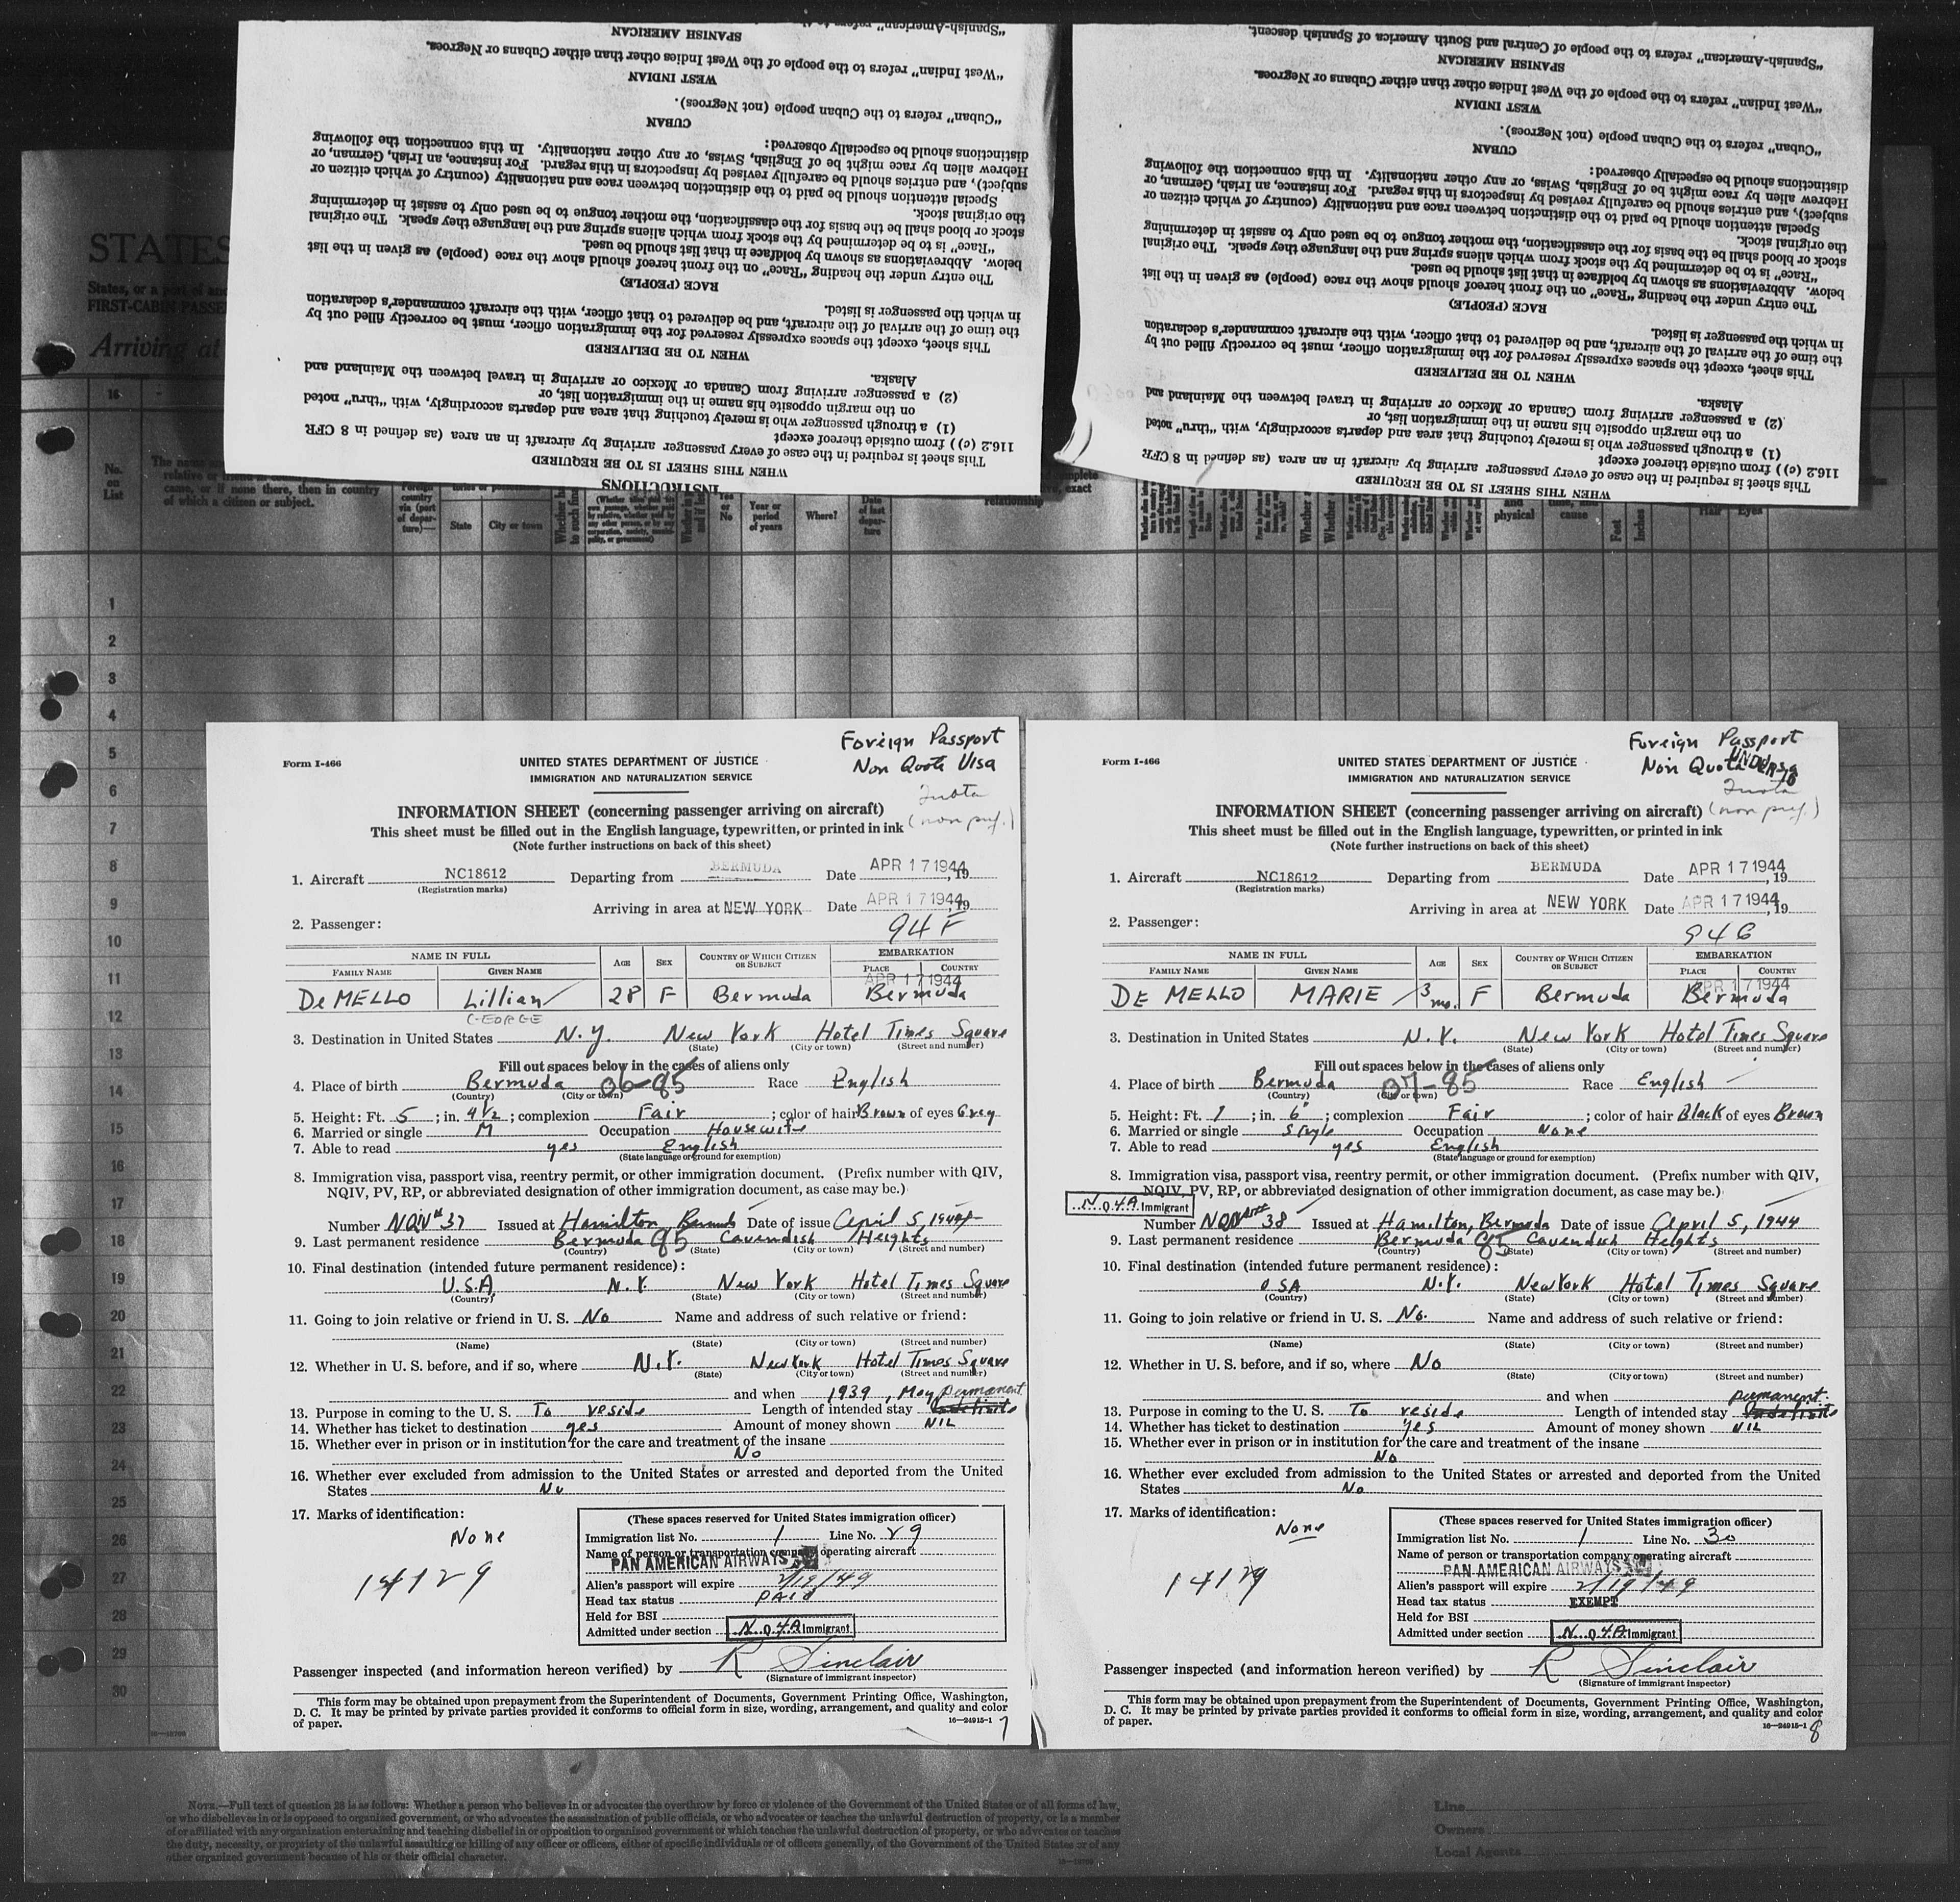 "Spanish-American" refers to
SPANISH AMERICAN
"West Indian" refers to the people of the West Indies other than either Cubans or Negroes.
WEST INDIAN
"Cuban" refers to the Cuban people (not Negroes).
CUBAN
distinctions should be especially observed:
Hebrew alien by race might be of English, Swiss, or any other nationality. In this connection the following
subject), and entries should be carefully revised by inspectors in this regard. For instance, an Irish, German, or
Special attention should be paid to the distinction between race and nationality (country of which citizen or
the original stock.
stock or blood shall be the basis for the classification, the mother tongue to be used only to assist in determining
"Race" is to be determined by the stock from which aliens spring and the language they speak. The original
below. Abbreviations as shown by boldface in that list should be used.
The entry under the heading "Race" on the front hereof should show the race (people) as given in the list
RACE (PEOPLE)
in which the passenger is listed.
the time of the arrival of the aircraft, and be delivered to that officer, with the aircraft commander's declaration
This sheet, except the spaces expressly reserved for the immigration officer, must be correctly filled out by
WHEN TO BE DELIVERED
Alaska.
(2) a passenger arriving from Canada or Mexico or arriving in travel between the Mainland and
on the margin opposite his name in the immigration list, or
(1) a through passenger who is merely touching that area and departs accordingly, with "thru" noted
116.2 (c)) from outside thereof except
This sheet is required in the case of every passenger arriving by aircraft in an area (as defined in 8 CFR
WHEN THIS SHEET IS TO BE REQUIRED
INSTRUCTIONS
"Spanish-American" refers to the people of Central and South America of Spanish descent.
SPANISH AMERICAN
"West Indian" refers to the people of the West Indies other than either Cubans or Negroes.
WEST INDIAN
"Cuban" refers to the Cuban people (not Negroes).
CUBAN
distinctions should be especially observed:
Hebrew alien by race might be of English, Swiss, or any other nationality. In this connection the following
subject), and entries should be carefully revised by inspectors in this regard. For instance, an Irish, German, or
Special attention should be paid to the distinction between race and nationality (country of which citizen or
the original stock.
stock or blood shall be the basis for the classification, the mother tongue to be used only to assist in determining
"Race" is to be determined by the stock from which aliens spring and the language they speak. The original
below. Abbreviations as shown by boldface in that list should be used.
The entry under the heading "Race" on the front hereof should show the race (people) as given in the list
RACE (PEOPLE)
in which the passenger is listed.
the time of the arrival of the aircraft, and be delivered to that officer, with the aircraft commander's declaration
This sheet, except the spaces expressly reserved for the immigration officer, must be correctly filled out by
WHEN TO BE DELIVERED
Alaska.
(2) a passenger arriving from Canada or Mexico or arriving in travel between the Mainland and
on the margin opposite his name in the immigration list, or
(1) a through passenger who is merely touching that area and departs accordingly, with "thru" noted
116.2 (c)) from outside thereof except
This sheet is required in the case of every passenger arriving by aircraft in an area (as defined in 8 CFR
WHEN THIS SHEET IS TO BE REQUIRED
STATES
States, or a port of
FIRST-CABIN
Arriving at
16
No. on List
of which a citizen or subject.
State City or town
Yes or No
Year or period of years
Where?
Date of last departure
relationship
physical
cause
Feet
Inches
Hair Eyes
1
2
3
4
5
6
7
8
9
10
11
12
13
14
15
16
17
18
19
20
21
22
23
24
25
26
27
28
29
30
Foreign Passport
Non Quota Visa
Quota
(non pref.)
Form I-466
UNITED STATES DEPARTMENT OF JUSTICE
IMMIGRATION AND NATURALIZATION SERVICE
INFORMATION SHEET (concerning passenger arriving on aircraft)
This sheet must be filled out in the English language, typewritten, or printed in ink
(Note further instructions on back of this sheet)
1. Aircraft NC18612 Departing from BERMUDA Date APR 17 1944, 19
(Registration marks)
Arriving in area at NEW YORK Date APR 17 1944, 19
2. Passenger: 94 F
NAME IN FULL AGE SEX COUNTRY OF WHICH CITIZEN OR SUBJECT EMBARKATION
FAMILY NAME GIVEN NAME PLACE COUNTRY
APR 17 1944
DeMELLO Lillian 28 F Bermuda Bermuda
GEORGE
3. Destination in United States N.Y. New York Hotel Times Square
(State) (City or town) (Street and number)
Fill out spaces below in the cases of aliens only
4. Place of birth Bermuda 06-85 Race English
(Country) (City or town)
5. Height: Ft. 5; in. 4 1/2; complexion Fair; color of hair Brown of eyes Grey
6. Married or single M Occupation Housewife
7. Able to read yes English
(State language or ground for exemption)
8. Immigration visa, passport visa, reentry permit, or other immigration document. (Prefix number with QIV,
NQIV, PV, RP, or abbreviated designation of other immigration document, as case may be.)
Number NQIV # 37 Issued at Hamilton, Bermuda Date of issue April 5, 1944
9. Last permanent residence Bermuda 85 Cavendish Heights
(Country) (State) (City or town) (Street and number)
10. Final destination (intended future permanent residence):
U.S.A. N.Y. New York Hotel Times Square
(Country) (State) (City or town) (Street and number)
11. Going to join relative or friend in U. S. No Name and address of such relative or friend:
(Name) (State) (City or town) (Street and number)
12. Whether in U. S. before, and if so, where N.Y. New York Hotel Times Square
(State) (City or town) (Street and number)
and when 1939, May
13. Purpose in coming to the U. S. To reside Length of intended stay Indefinite permanent
14. Whether has ticket to destination yes Amount of money shown NIL
15. Whether ever in prison or in institution for the care and treatment of the insane
No
16. Whether ever excluded from admission to the United States or arrested and deported from the United
States No
17. Marks of identification:
None
14129
(These spaces reserved for United States immigration officer)
Immigration list No. 1 Line No. 29
Name of person or transportation company operating aircraft
PAN AMERICAN AIRWAYS
Alien's passport will expire 2/19/49
Head tax status PAID
Held for BSI
Admitted under section N. Q. 4A Immigrant
Passenger inspected (and information hereon verified) by R Sinclair
(Signature of immigrant inspector)
This form may be obtained upon prepayment from the Superintendent of Documents, Government Printing Office, Washington,
D. C. It may be printed by private parties provided it conforms to official form in size, wording, arrangement, and quality and color
of paper.
16—24915-1 7
Foreign Passport
Non Quota Visa
UNDER 16
Quota
(non pref.)
Form I-466
UNITED STATES DEPARTMENT OF JUSTICE
IMMIGRATION AND NATURALIZATION SERVICE
INFORMATION SHEET (concerning passenger arriving on aircraft)
This sheet must be filled out in the English language, typewritten, or printed in ink
(Note further instructions on back of this sheet)
1. Aircraft NC18612 Departing from BERMUDA Date APR 17 1944, 19
(Registration marks)
Arriving in area at NEW YORK Date APR 17 1944, 19
2. Passenger: 94 G
NAME IN FULL AGE SEX COUNTRY OF WHICH CITIZEN OR SUBJECT EMBARKATION
FAMILY NAME GIVEN NAME PLACE COUNTRY
APR 17 1944
DE MELLO MARIE 3 mo. F Bermuda Bermuda
3. Destination in United States N.Y. New York Hotel Times Square
(State) (City or town) (Street and number)
Fill out spaces below in the cases of aliens only
4. Place of birth Bermuda 07-85 Race English
(Country) (City or town)
5. Height: Ft. 1; in. 6"; complexion Fair; color of hair Black of eyes Brown
6. Married or single Single Occupation None
7. Able to read yes English
(State language or ground for exemption)
8. Immigration visa, passport visa, reentry permit, or other immigration document. (Prefix number with QIV,
NQIV, PV, RP, or abbreviated designation of other immigration document, as case may be.)
N. Q. 4A Immigrant
Number 38 Issued at Hamilton, Bermuda Date of issue April 5, 1944
9. Last permanent residence Bermuda 85 Cavendish Heights
(Country) (State) (City or town) (Street and number)
10. Final destination (intended future permanent residence):
USA N.Y. New York Hotel Times Square
(Country) (State) (City or town) (Street and number)
11. Going to join relative or friend in U. S. No. Name and address of such relative or friend:
(Name) (State) (City or town) (Street and number)
12. Whether in U. S. before, and if so, where No
(State) (City or town) (Street and number)
and when
13. Purpose in coming to the U. S. To reside Length of intended stay Indefinite permanent.
14. Whether has ticket to destination yes Amount of money shown NIL
15. Whether ever in prison or in institution for the care and treatment of the insane
No
16. Whether ever excluded from admission to the United States or arrested and deported from the United
States No
17. Marks of identification:
None
14129
(These spaces reserved for United States immigration officer)
Immigration list No. 1 Line No. 30
Name of person or transportation company operating aircraft
PAN AMERICAN AIRWAYS
Alien's passport will expire 2/19/49
Head tax status EXEMPT
Held for BSI
Admitted under section N. Q. 4A Immigrant
Passenger inspected (and information hereon verified) by R Sinclair
(Signature of immigrant inspector)
This form may be obtained upon prepayment from the Superintendent of Documents, Government Printing Office, Washington,
D. C. It may be printed by private parties provided it conforms to official form in size, wording, arrangement, and quality and color
of paper.
16—24915-1 8
NOTE.—Full text of question 28 is as follows: Whether a person who believes in or advocates the overthrow by force or violence of the Government of the United States or of all forms of law,
or who disbelieves in or is opposed to organized government, or who advocates the assassination of public officials, or who advocates or teaches the unlawful destruction of property, or is a member
of or affiliated with any organization entertaining and teaching disbelief in or opposition to organized government or which teaches the unlawful destruction of property, or who advocates or teaches
the duty, necessity, or propriety of the unlawful assaulting or killing of any officer or officers, either of specific individuals or of officers generally, of the Government of the United States or of any
other organized government because of his or their official character.
Line
Owners
Local Agents